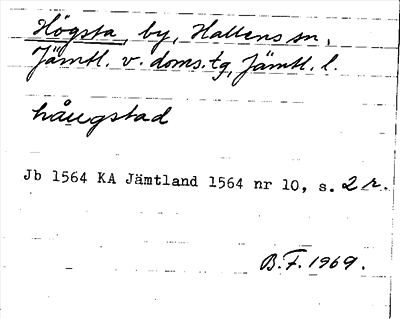 Högsta, by, Hallens sn,
Jämtl. v. doms.tg, Jämtl. l.
håugstad
Jb 1564 KA Jämtland 1564 nr 10, s. 2 r.
B.F. 1969.